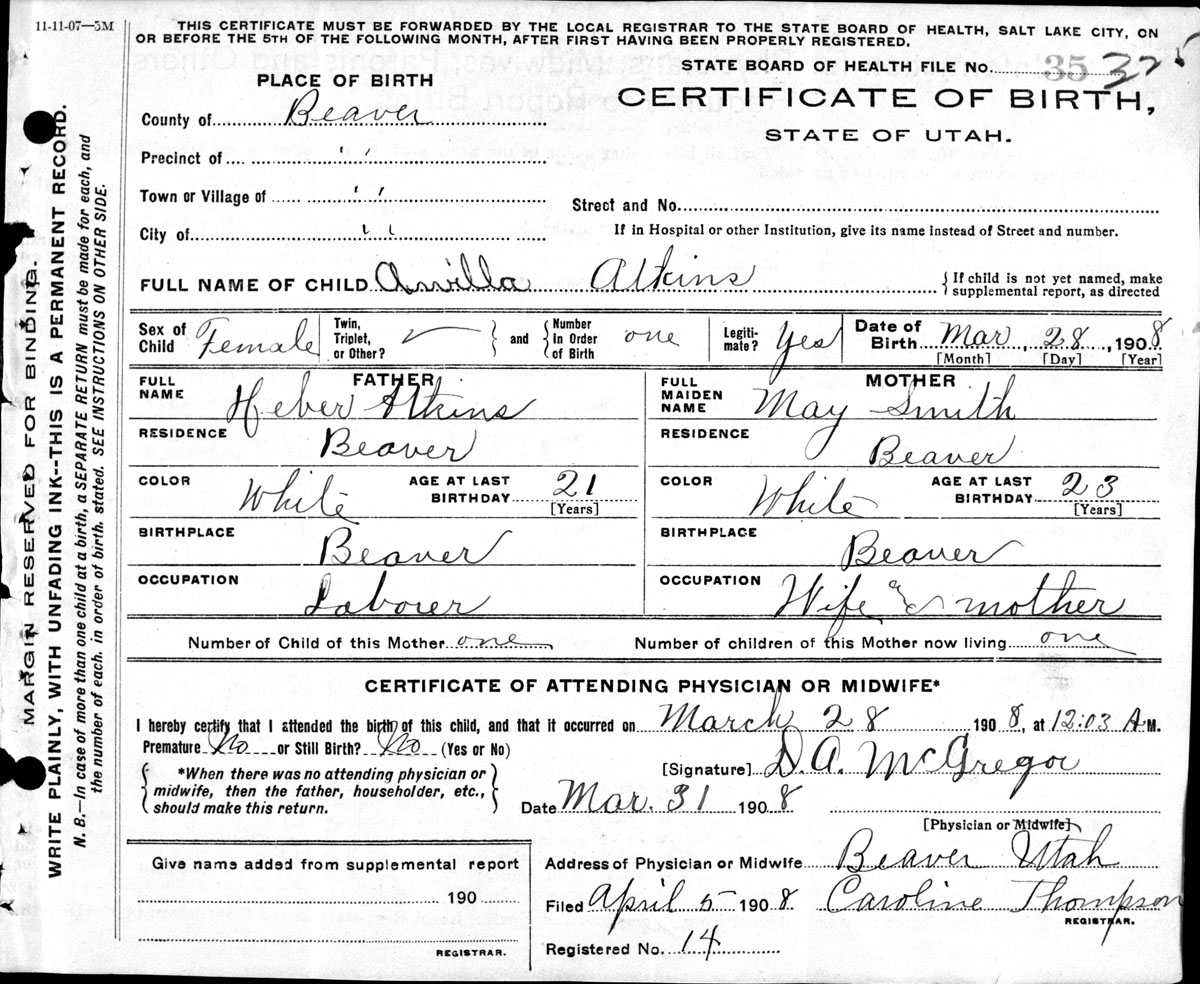 11-11-07—5M
THIS CERTIFICATE MUST BE FORWARDED BY THE LOCAL REGISTRAR TO THE STATE BOARD OF HEALTH, SALT LAKE CITY, ON
OR BEFORE THE 5TH OF THE FOLLOWING MONTH, AFTER FIRST HAVING BEEN PROPERLY REGISTERED.
MARGIN RESERVED FOR BINDING.
WRITE PLAINLY, WITH UNFADING INK--THIS IS A PERMANENT RECORD.
N. B.—In case of more than one child at a birth, a SEPARATE RETURN must be made for each, and
the number of each. in order of birth. stated. SEE INSTRUCTIONS ON OTHER SIDE.
PLACE OF BIRTH
STATE BOARD OF HEALTH FILE No. 35 325
CERTIFICATE OF BIRTH,
STATE OF UTAH.
County of Beaver
Precinct of " "
Town or Village of " "
Street and No.
City of " "
If in Hospital or other Institution, give its name instead of Street and number.
FULL NAME OF CHILD Anvilla Atkins { If child is not yet named, make supplemental report, as directed
Sex of Child Female Twin, Triplet, or Other? } and { Number in Order of Birth one Legiti-mate? Yes Date of Birth Mar, 28, 1908
[Month] [Day] [Year]
FATHER MOTHER
FULL NAME Heber Atkins FULL MAIDEN NAME May Smith
RESIDENCE Beaver RESIDENCE Beaver
COLOR White AGE AT LAST BIRTHDAY 21 [Years] COLOR White AGE AT LAST BIRTHDAY 23 [Years]
BIRTHPLACE Beaver BIRTHPLACE Beaver
OCCUPATION Laborer OCCUPATION Wife & mother
Number of Child of this Mother one Number of children of this Mother now living one
CERTIFICATE OF ATTENDING PHYSICIAN OR MIDWIFE*
I hereby certify that I attended the birth of this child, and that it occurred on March 28 1908, at 12:03 A.M.
Premature No or Still Birth? No (Yes or No)
{ *When there was no attending physician or midwife, then the father, householder, etc., should make this return. }
[Signature] D. A. McGregor
Date Mar. 31 1908
[Physician or Midwife]
Give name added from supplemental report
190
REGISTRAR.
Address of Physician or Midwife Beaver Utah
Filed April 5 1908 Caroline Thompson
REGISTRAR.
Registered No. 14